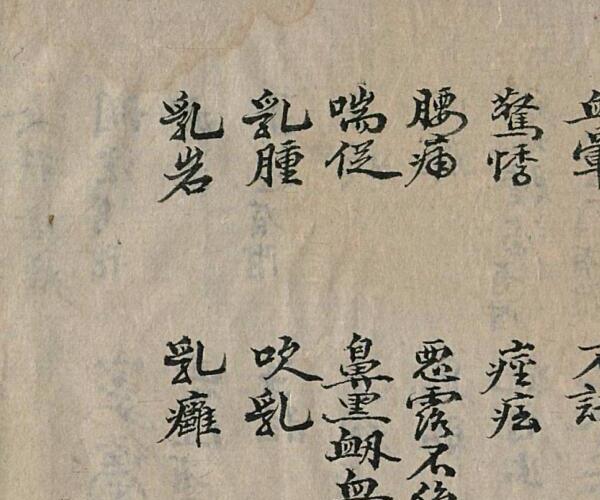 血暈 不
驚悸 痙
腰痛 惡露不
喘促 鼻黑衂血
乳腫 吹乳
乳岩 乳癰